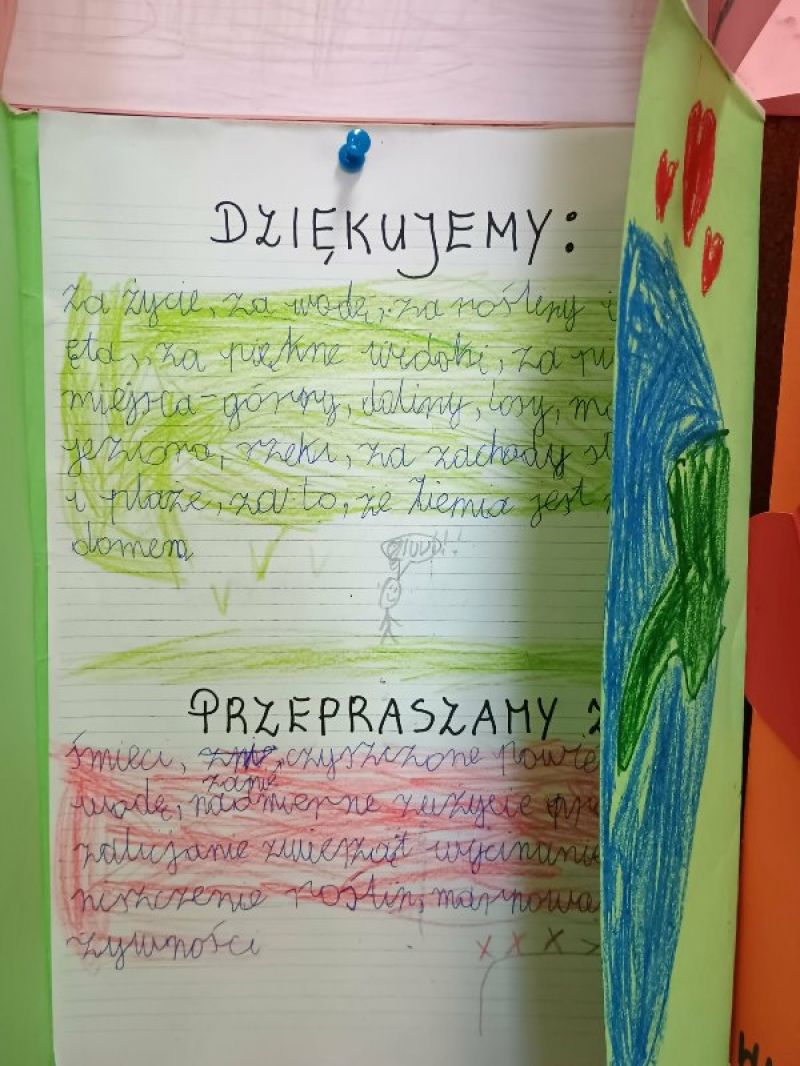 DZIĘKUJEMY:
za życie, za wodę, za rośliny i
ęta, za piękne widoki, za
miejsca-górny, doliny, lasy,
jeziora, rzeki, za zachody sł
i plaże, za to, że Ziemia jest
domem
PRZEPRASZAMY Z
śmieci, czyszczone
zanie
wodę, nadmierne zużycie
zabijanie zwierząt wycinanie
niszczenie roślin, marnowa
żywności